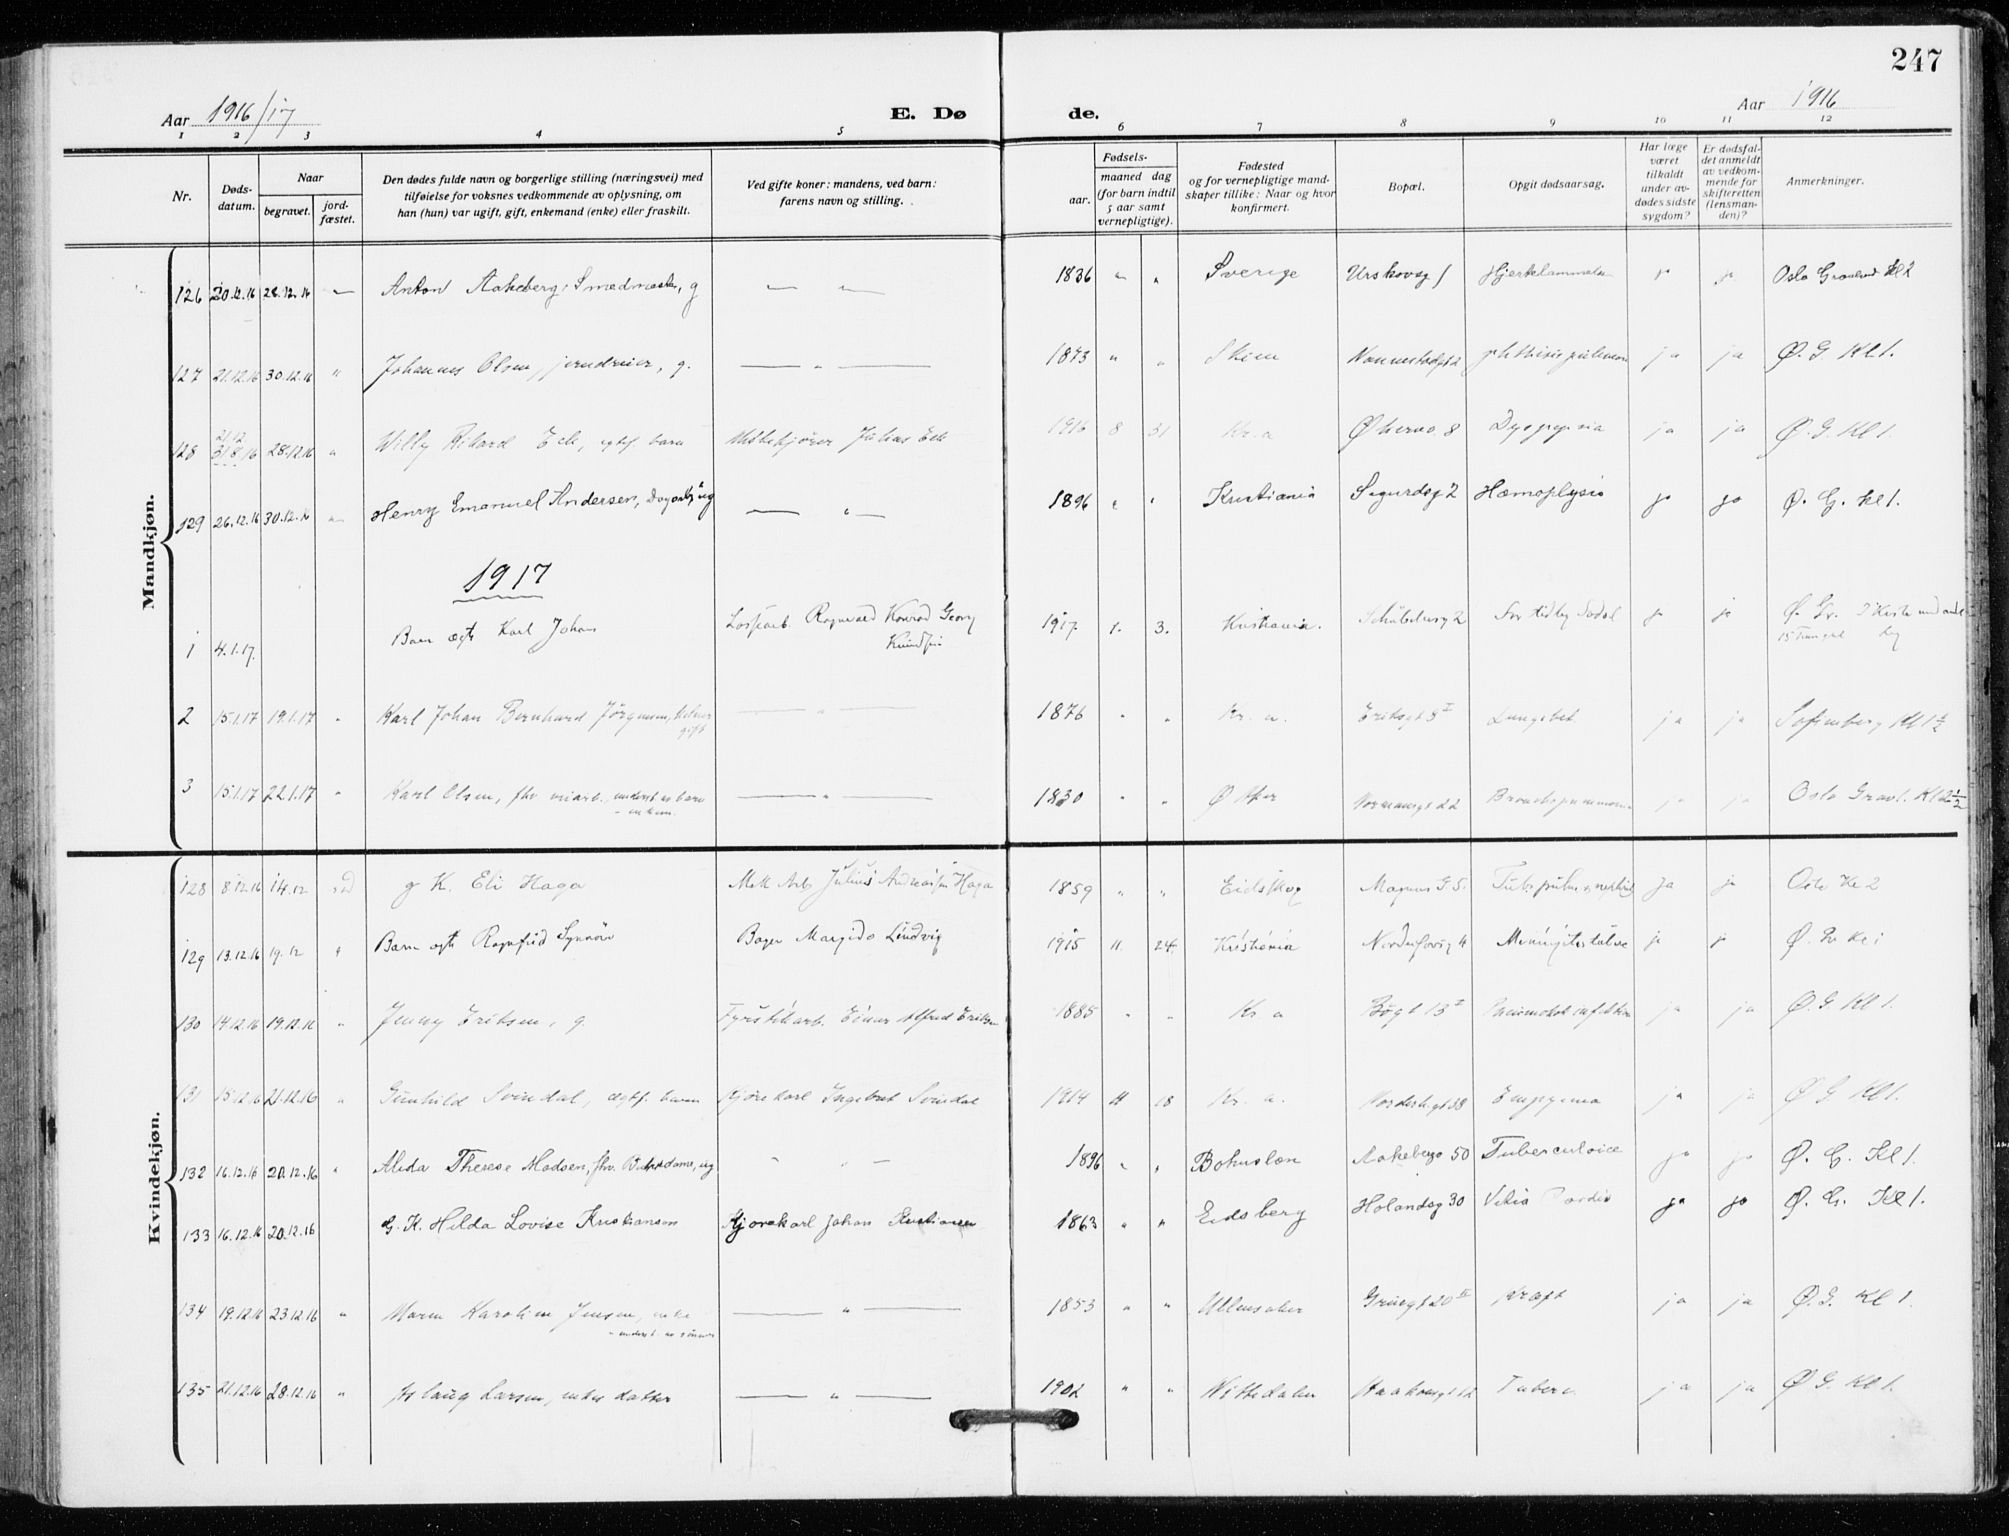 247
Aar 1916/17
E. Dø
de.
Aar 1916
1 2 3 4 5 6 7 8 9 10 11 12
Nr.
Døds-
datum.
Naar
begravet.
jord-
fæstet.
Den dødes fulde navn og borgerlige stilling (næringsvei) med
tilføielse for voksnes vedkommende av oplysning, om
han (hun) var ugift, gift, enkemand (enke) eller fraskilt.
Ved gifte koner: mandens, ved barn:
farens navn og stilling.
Fødsels-
aar.
maaned dag
(for barn indtil
5 aar samt
vernepligtige).
Fødested
og for vernepligtige mand-
skaper tillike: Naar og hvor
konfirmert.
Bopæl.
Opgit dødsaarsag.
Har læge
været
tilkaldt
under av-
dødes sidste
sygdom?
Er dødsfal-
det anmeldt
av vedkom-
mende for
skifteretten
(lensman-
den)?
Anmerkninger.
Mandkjøn.
126 20.12.16 28.12.16 Anton Aakeberg, Smedmester, g 1836 " " Sverige Urskovsg 1 Oslo Kl 2
127 21.12.16 30.12.16 " Johannes Olsen, jerndreier, g. — " — 1873 " " Skien ja ja Ø. G Kl 1.
128 28.12.16 " Willy Rikard Eek, egtef. barn Julius Eek 1916 8 31 Kr.a 8 Dyspepsia ja ja Ø. G. Kl 1.
129 26.12.16 30.12.16 Henry Emanuel Andersen, ug — " — 1896 " " Kristiania Sigurdsg 2 Hæmoptysis ja ja Ø. G. Kl 1.
1917
1 4.1.17. Barn ægte Karl Johan Ragnvald Konrad Georg
1917. 1. 3. Kristiania. 2 ja ja Ø. Gr.
2 15.1.17 19.1.17 " Karl Johan Bernhard
gift — " — 1876 " " Kr. a. Eriksgt 8 I Lungebet ja ja Sofienberg Kl 1 1/2
3 15.1.17 22.1.17 " Karl Olsen, fhv
— " — 1830 " " Normansgt 22 ja ja Oslo Gravl. Kl 2 1/2
Kvindekjøn.
128 8.12.16 14.12 g K. Eli Haga Mek Arb Julius Haga 1859 " " Eidskog Magnus G 5. ja ja Oslo Kl 2
129 13.12.16 19.12 " Barn ægte Ragnfrid Synnöv Bager Ludvig 1915 11. 24. Kristiania 4 ja ja Ø. Gr Kl 1
130 14.12.16 19.12.16 " Jenny Eriksen, g. Fyrstikarb. Einar Alfred Eriksen 1885 " " Kr a Bøgt 13 I ja ja Ø. G Kl 1.
131 15.12.16 21.12.16 " Gunhild Svindal, ægtf. barn Kjørekarl Ingebret Svindal 1914 11 18 Kr. a. 38 Empyema ja ja Ø G Kl 1.
132 16.12.16 20.12.16 " Alida Therese Madsen, fhv. ug " — 1896 " " Bohuslen Aakebergv 50 Tuberculoice ja ja Ø. G. Kl 1.
133 16.12.16 20.12.16 G. K. Hilda Lovise Kristiansen Kjørekarl Johan Kristiansen 1863 " " Eidsberg Holandsg 30 ja ja Ø. G. Kl 1.
134 19.12.16 23.12.16 " Maren Karoline Jensen, enke
— " — 1853 " " Ullensaker Grüegt 20 II kræft ja ja Ø. G. Kl 1.
135 21.12.16 28.12.16 " Aslaug Larsen, enkes datter — " — 1902 " " Nittedalen Haakonsgt 12 Tuberc. ja ja Ø G. Kl 1.